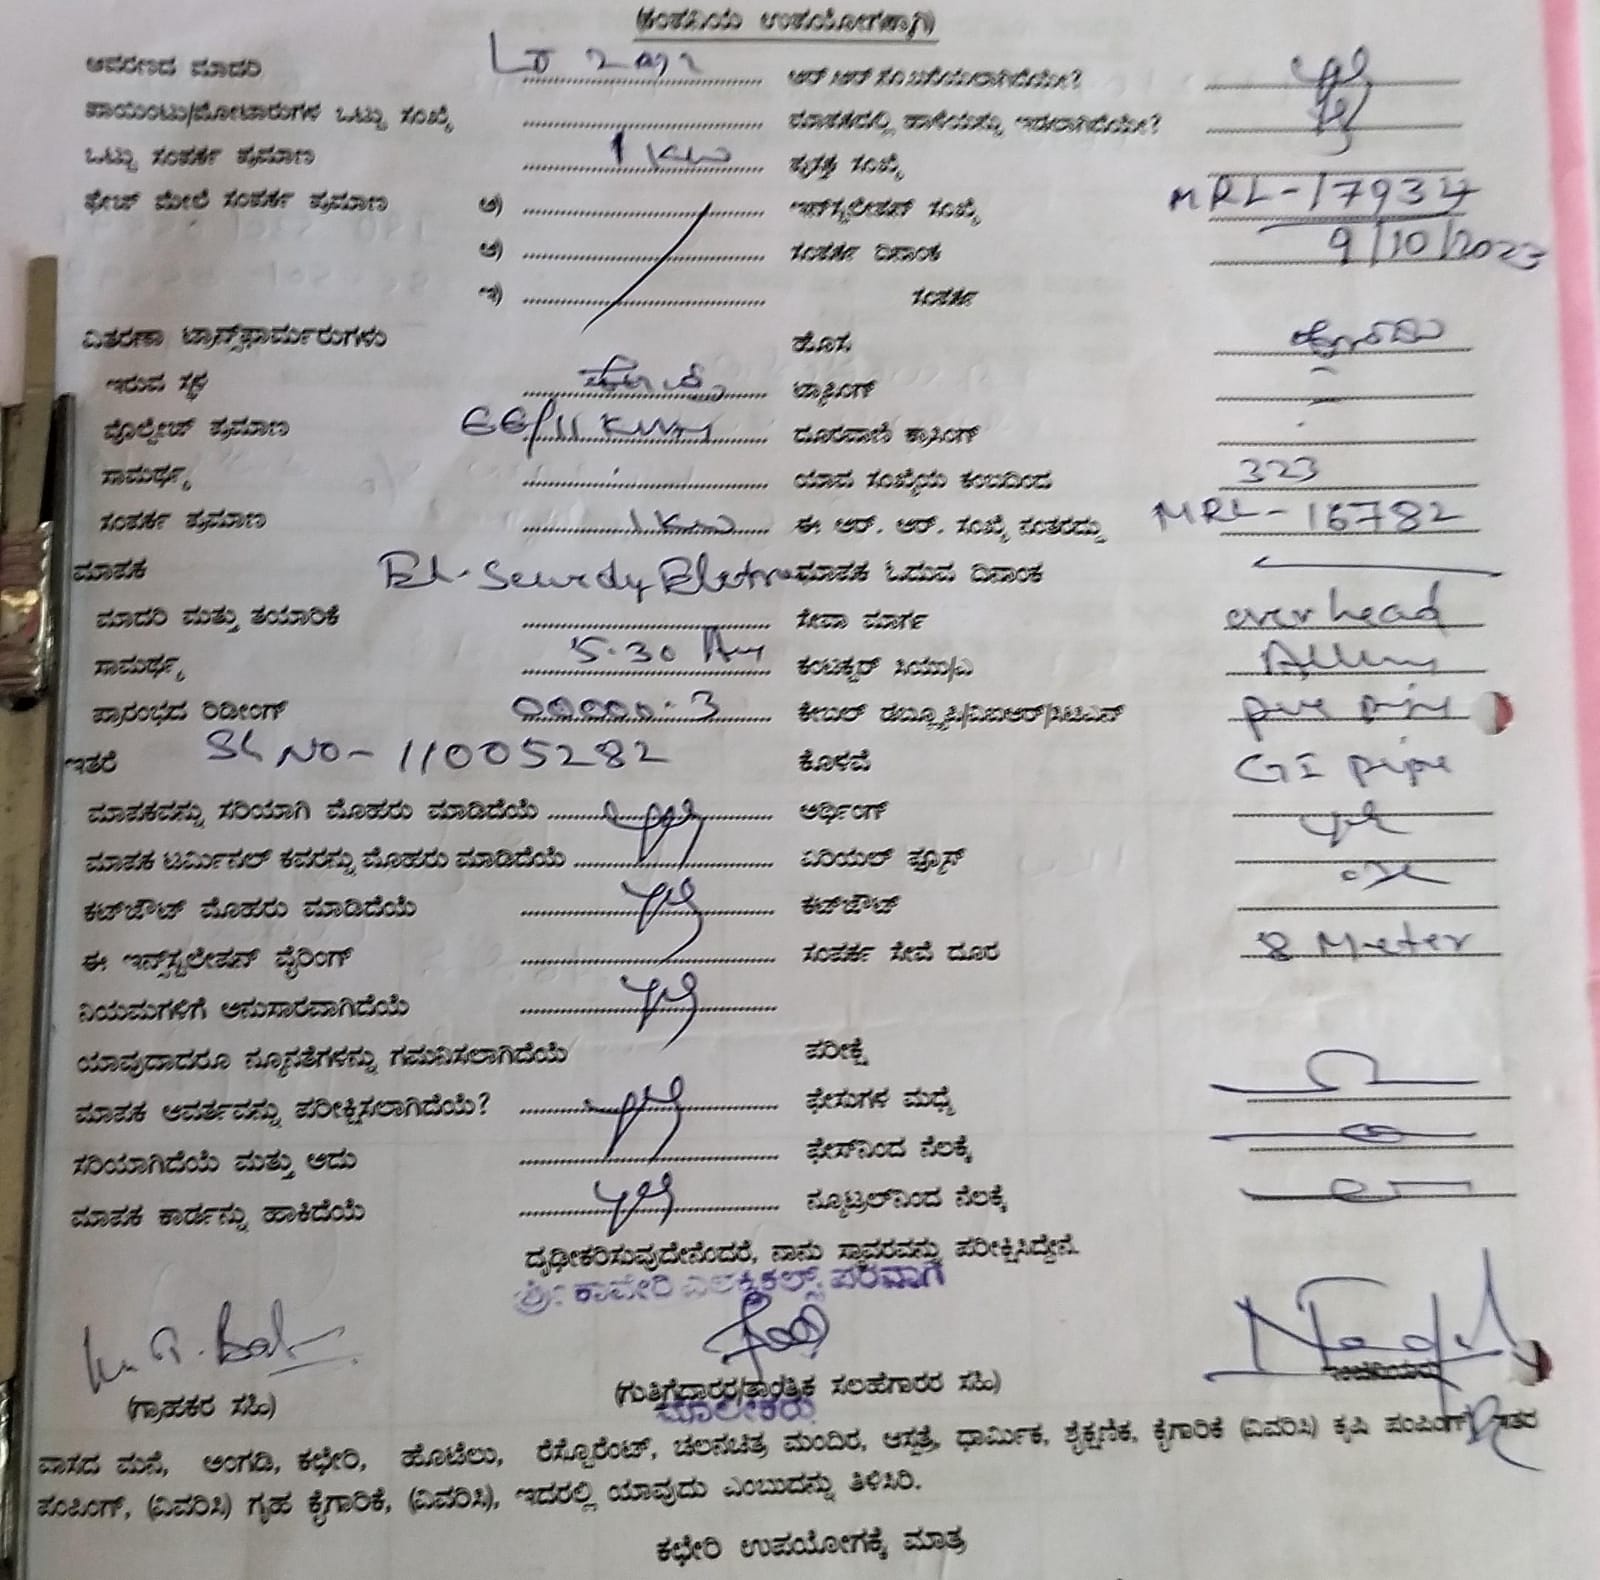 (ಕಂಪನಿಯ ಉಪಯೋಗಕ್ಕಾಗಿ)
ಆವರಣದ ಮಾದರಿ ಆರ್.ಆರ್.ಸಂ.ಬರೆಯಲಾಗಿದೆಯೇ?
ಪಾಯಿಂಟು/ಮೋಟಾರುಗಳ ಒಟ್ಟು ಸಂಖ್ಯೆ ಮಾಪಕದಲ್ಲಿ ಹಾಳೆಯನ್ನು ಇಡಲಾಗಿದೆಯೇ?
ಒಟ್ಟು ಸಂಪರ್ಕ ಪ್ರಮಾಣ 1 KW ಪುಸ್ತಕ ಸಂಖ್ಯೆ
ಫೇಜ್ ಮೇಲೆ ಸಂಪರ್ಕ ಪ್ರಮಾಣ ಅ) ಇನ್‌ಸ್ಟಲೇಷನ್ ಸಂಖ್ಯೆ MRL-17934
ಆ) ಸಂಪರ್ಕ ದಿನಾಂಕ 9/10/2023
ಇ) ಸಂಪರ್ಕ
ವಿತರಣಾ ಟ್ರಾನ್ಸ್‌ಫಾರ್ಮರುಗಳು ಹೊಸ
ಇರುವ ಸ್ಥಳ ಟ್ಯಾಪಿಂಗ್
ವೊಲ್ಟೇಜ್ ಪ್ರಮಾಣ 66/11 ದೂರವಾಣಿ ಕ್ರಾಸಿಂಗ್
ಸಾಮರ್ಥ್ಯ ಯಾವ ಸಂಖ್ಯೆಯ ಕಂಬದಿಂದ 323
ಸಂಪರ್ಕ ಪ್ರಮಾಣ 1 KW ಈ ಆರ್. ಆರ್. ಸಂಖ್ಯೆ ನಂತರದ್ದು MRL-16782
ಮಾಪಕ ಮಾಪಕ ಓದುವ ದಿನಾಂಕ
ಮಾದರಿ ಮತ್ತು ತಯಾರಿಕೆ ಸೇವಾ ಮಾರ್ಗ over head
ಸಾಮರ್ಥ್ಯ 5-30 ಕಂಟಕ್ಟರ್ ಸಿಯು/ಎ
ಪ್ರಾರಂಭದ ರಿಡೀಂಗ್ 00000.3 ಕೇಬಲ್ ಡಬ್ಲ್ಯೂಪಿ/ವಿಐಆರ್/ಸಿಟಿಎಸ್ pvc pipe
ಇತರೆ Sl No-11005282 ಕೊಳವೆ GI pipe
ಮಾಪಕವನ್ನು ಸರಿಯಾಗಿ ಮೊಹರು ಮಾಡಿದೆಯೆ ಅರ್ಥಿಂಗ್
ಮಾಪಕ ಟರ್ಮಿನಲ್ ಕವರನ್ನು ಮೊಹರು ಮಾಡಿದೆಯೆ ಏರಿಯಲ್ ಫ್ಯೂಸ್
ಕಟ್‌ಔಟ್ ಮೊಹರು ಮಾಡಿದೆಯೆ ಕಟ್‌ಔಟ್
ಈ ಇನ್‌ಸ್ಟಲೇಷನ್ ವೈರಿಂಗ್ ಸಂಪರ್ಕ ಸೇವೆ ದೂರ 8 Meter
ನಿಯಮಗಳಿಗೆ ಅನುಸಾರವಾಗಿದೆಯೆ
ಯಾವುದಾದರೂ ನ್ಯೂನತೆಗಳನ್ನು ಗಮನಿಸಲಾಗಿದೆಯೆ ಪರೀಕ್ಷೆ
ಮಾಪಕ ಆವರ್ತವನ್ನು ಪರೀಕ್ಷಿಸಲಾಗಿದೆಯೆ? ಫೇಸುಗಳ ಮಧ್ಯೆ
ಸರಿಯಾಗಿದೆಯೆ ಮತ್ತು ಅದು ಫೇಸ್‌ನಿಂದ ನೆಲಕ್ಕೆ
ಮಾಪಕ ಕಾರ್ಡನ್ನು ಹಾಕಿದೆಯೆ ನ್ಯೂಟ್ರಲ್‌ನಿಂದ ನೆಲಕ್ಕೆ
ದೃಢೀಕರಿಸುವುದೇನೆಂದರೆ, ನಾನು ಸ್ಥಾವರವನ್ನು ಪರೀಕ್ಷಿಸಿದ್ದೇನೆ.
ಶ್ರೀ ಕಾವೇರಿ ಎಲೆಕ್ಟ್ರಿಕಲ್ಸ್ ಪರವಾಗಿ
(ಗ್ರಾಹಕರ ಸಹಿ) (ಗುತ್ತಿಗೆದಾರರ/ತಾಂತ್ರಿಕ ಸಲಹೆಗಾರರ ಸಹಿ)
ಮಾಲೀಕರು
ವಾಸದ ಮನೆ, ಅಂಗಡಿ, ಕಛೇರಿ, ಹೊಟೆಲು, ರೆಸ್ಟೋರೆಂಟ್, ಚಲನಚಿತ್ರ ಮಂದಿರ, ಆಸ್ಪತ್ರೆ, ಧಾರ್ಮಿಕ, ಶೈಕ್ಷಣಿಕ, ಕೈಗಾರಿಕೆ (ವಿವರಿಸಿ) ಕೃಷಿ ಪಂಪಿಂಗ್ ಇತರ
ಪಂಪಿಂಗ್, (ವಿವರಿಸಿ) ಗೃಹ ಕೈಗಾರಿಕೆ, (ವಿವರಿಸಿ), ಇದರಲ್ಲಿ ಯಾವುದು ಎಂಬುದನ್ನು ತಿಳಿಸಿರಿ.
ಕಛೇರಿ ಉಪಯೋಗಕ್ಕೆ ಮಾತ್ರ